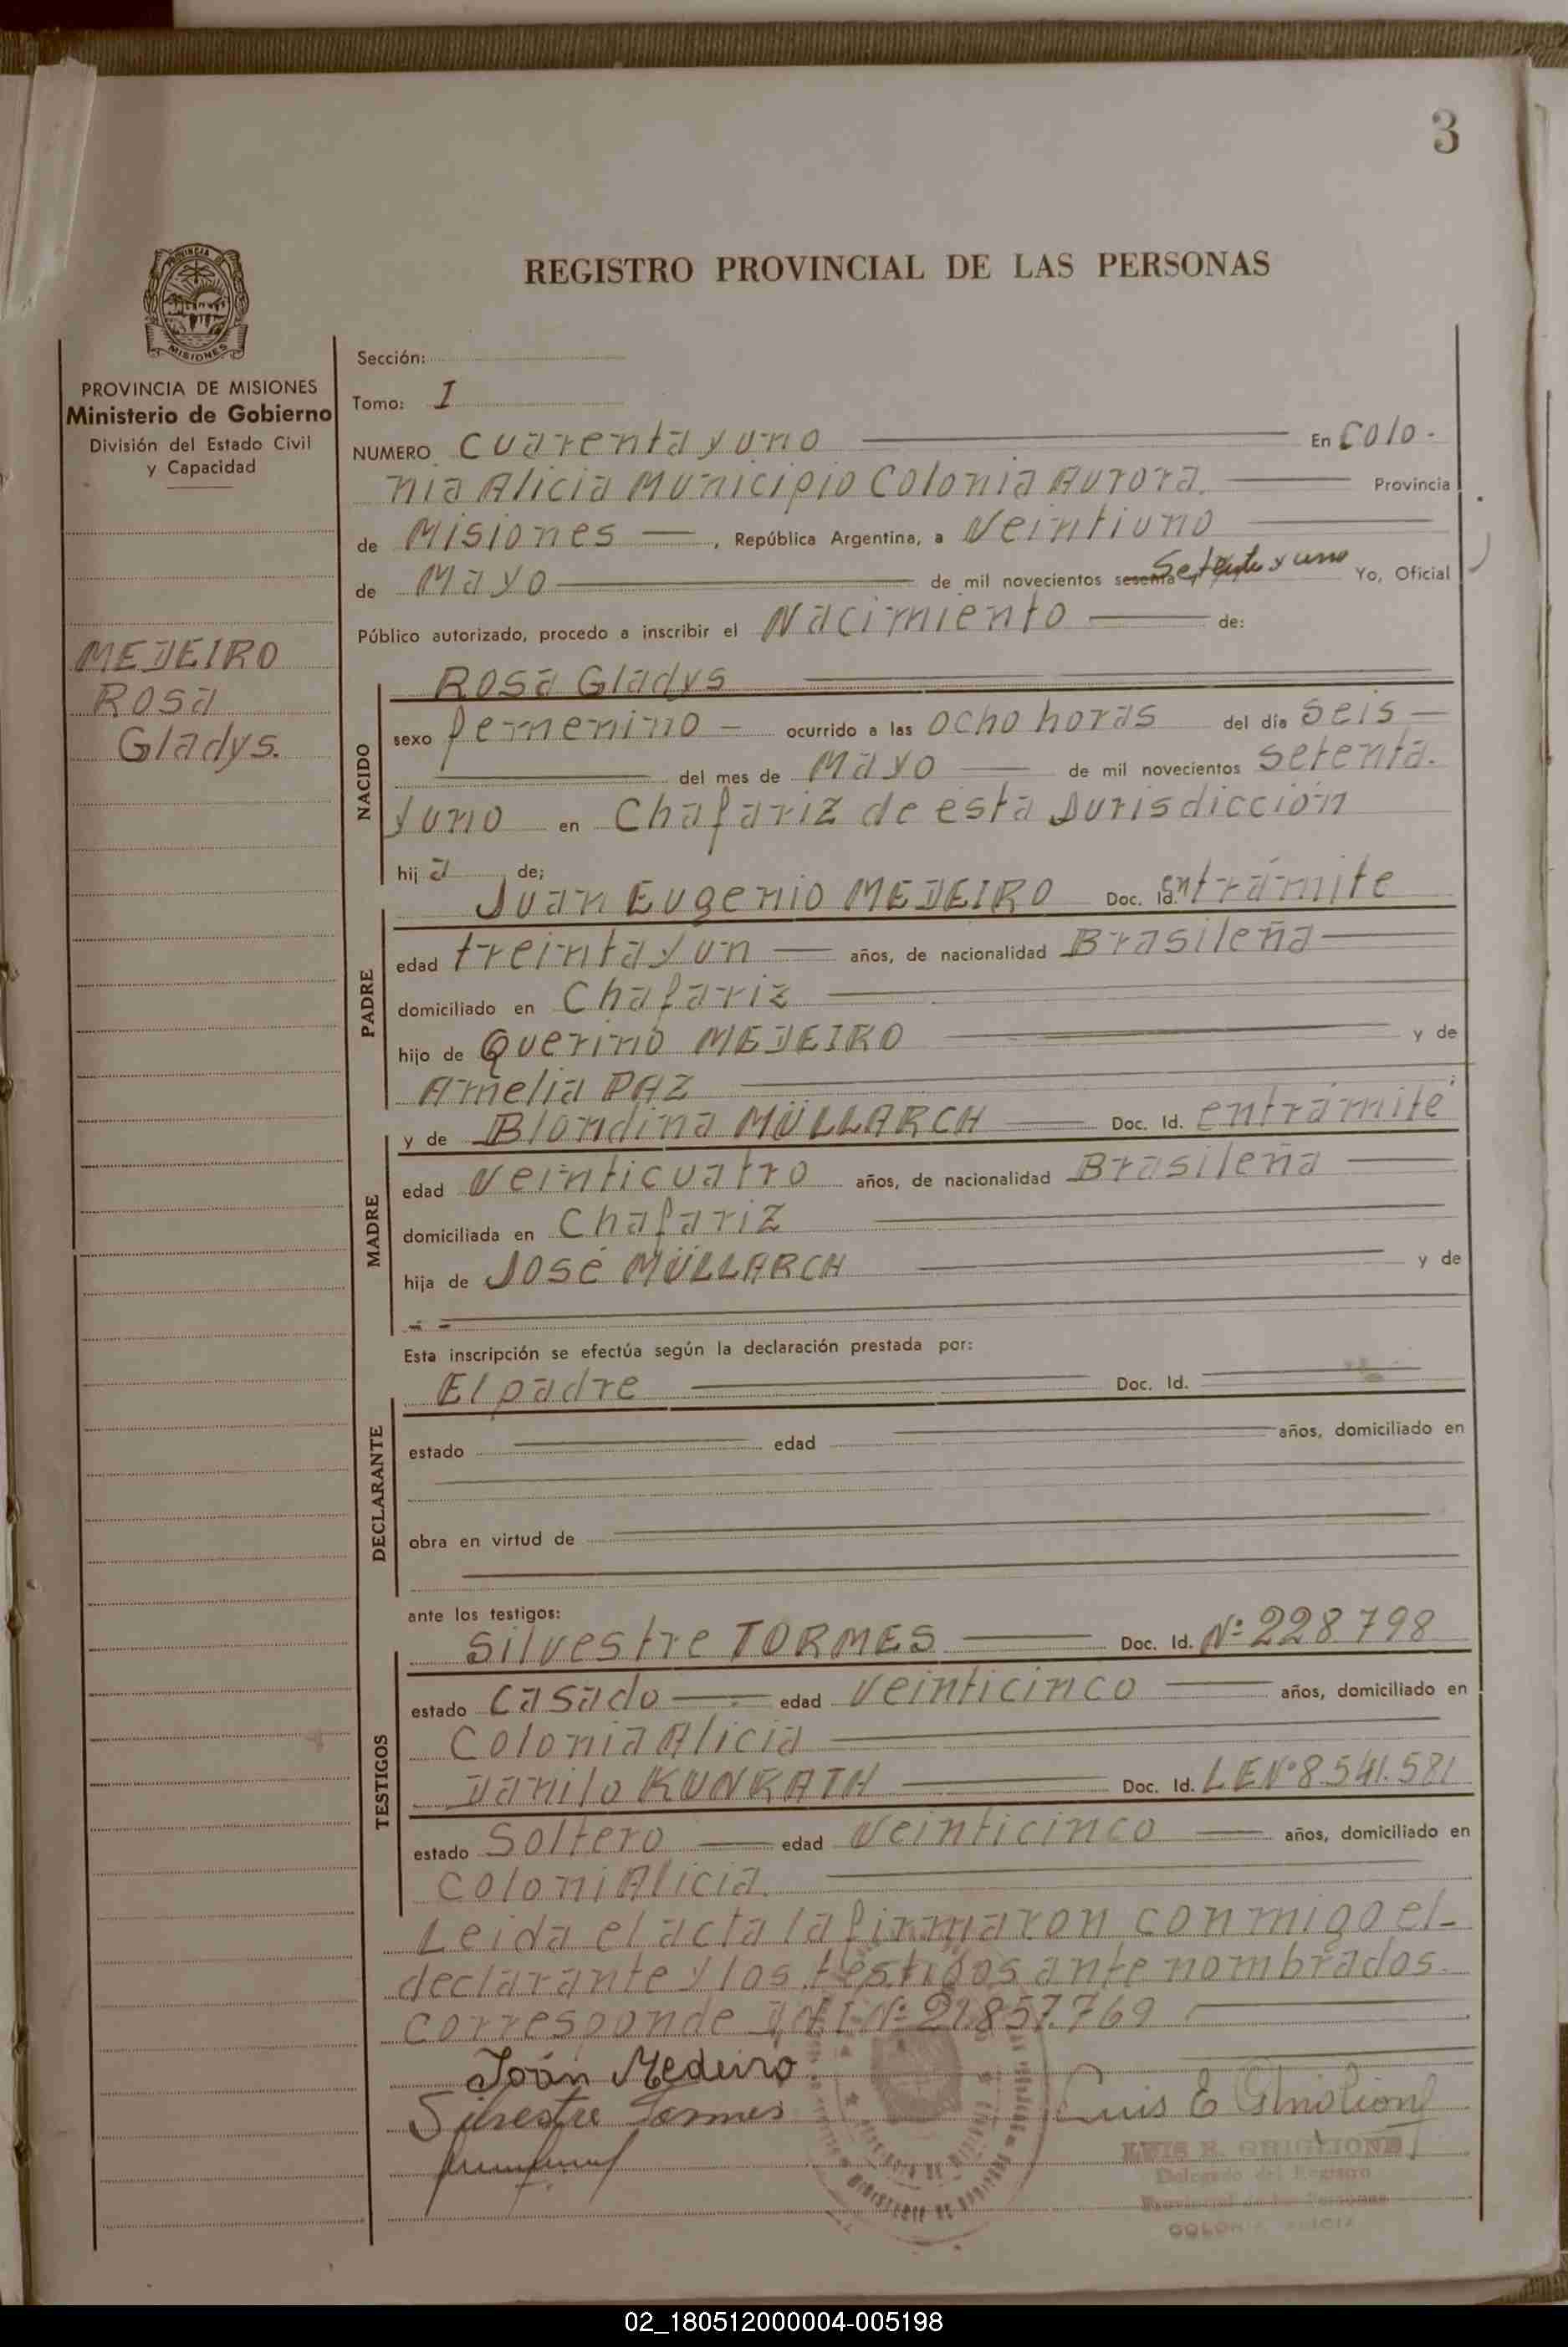 3
REGISTRO PROVINCIAL DE LAS PERSONAS
PROVINCIA DE
MISIONES
PROVINCIA DE MISIONES
Ministerio de Gobierno
División del Estado Civil
y Capacidad
MEDEIRO
ROSA
Gladys.
Sección:
Tomo: I
NUMERO cuarenta y uno En Colo-
nia Alicia Municipio Colonia Aurora. Provincia
de Misiones, República Argentina, a Veintiuno
de Mayo de mil novecientos sesenta Setenta y uno Yo, Oficial
Público autorizado, procedo a inscribir el Nacimiento de:
NACIDO
Rosa Gladys
sexo femenino - ocurrido a las ocho horas del día seis
del mes de Mayo de mil novecientos setenta.
y uno en Chafariz de esta Jurisdicción
hija de;
PADRE
Juan Eugenio MEDEIRO Doc. Id. en trámite
edad treinta y un años, de nacionalidad Brasileña
domiciliado en Chafariz
hijo de Querino MEDEIRO y de
Amelia PAZ
MADRE
y de Blondina MÜLLARCH Doc. Id. en trámite
edad Veinticuatro años, de nacionalidad Brasileña
domiciliada en Chafariz
hija de José MÜLLARCH y de
Esta inscripción se efectúa según la declaración prestada por:
DECLARANTE
El padre Doc. Id.
estado edad años, domiciliado en
obra en virtud de
ante los testigos:
TESTIGOS
Silvestre TORMES Doc. Id. Nº 228.798
estado casado edad veinticinco años, domiciliado en
Colonia Alicia
Danilo KUNRATH Doc. Id. L E Nº 8.541.581
estado Soltero edad Veinticinco años, domiciliado en
Coloni Alicia.
Leida el acta la firmaron conmigo el-
declarante y los testigos ante nombrados.
corresponde DNI Nº 21.857.769
Joán Medeiro.
Silvestre Tormes
Luis E Ghiglione
LUIS E. GHIGLIONE
Delegado del Registro
Provincial de las Personas
COLONIA ALICIA
02_180512000004-005198